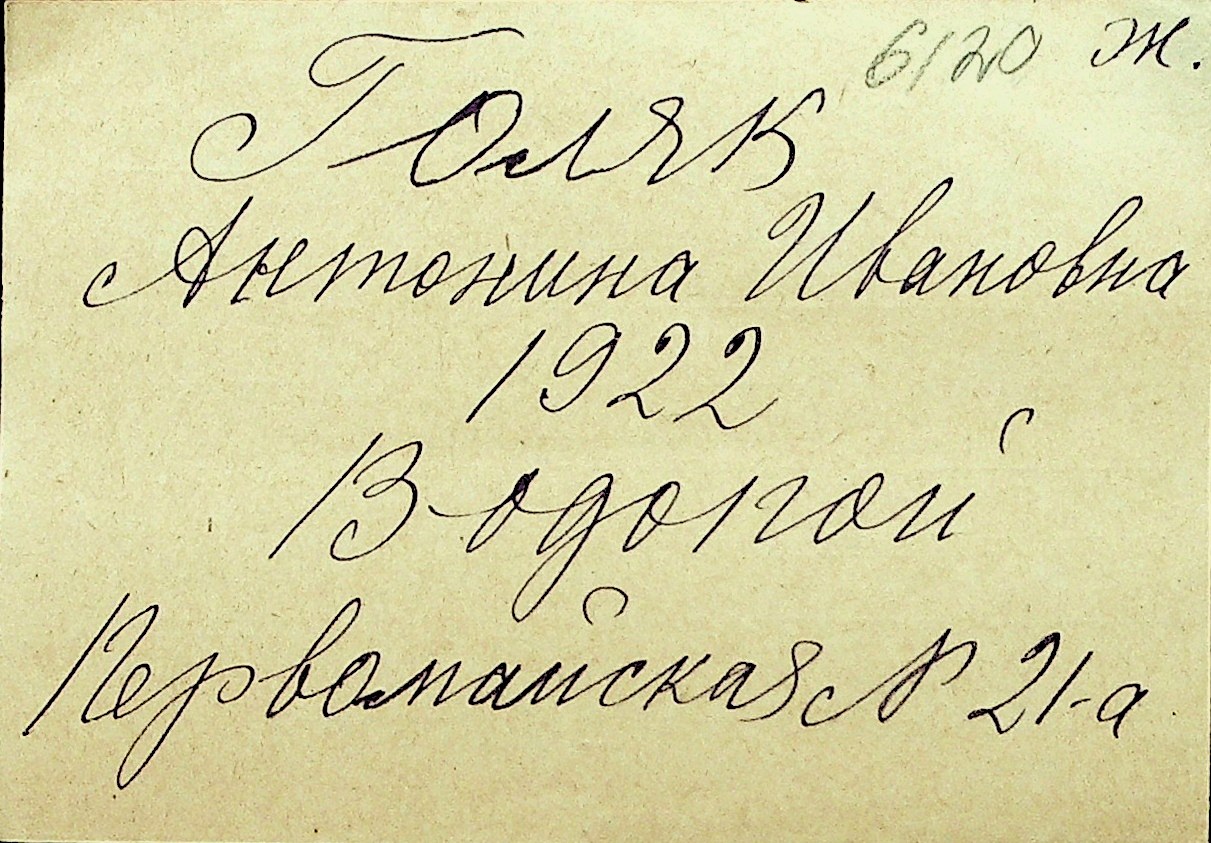 6120 ж.
Голяк
Антонина Ивановна
1922
Водопой
Первомайская № 21-а